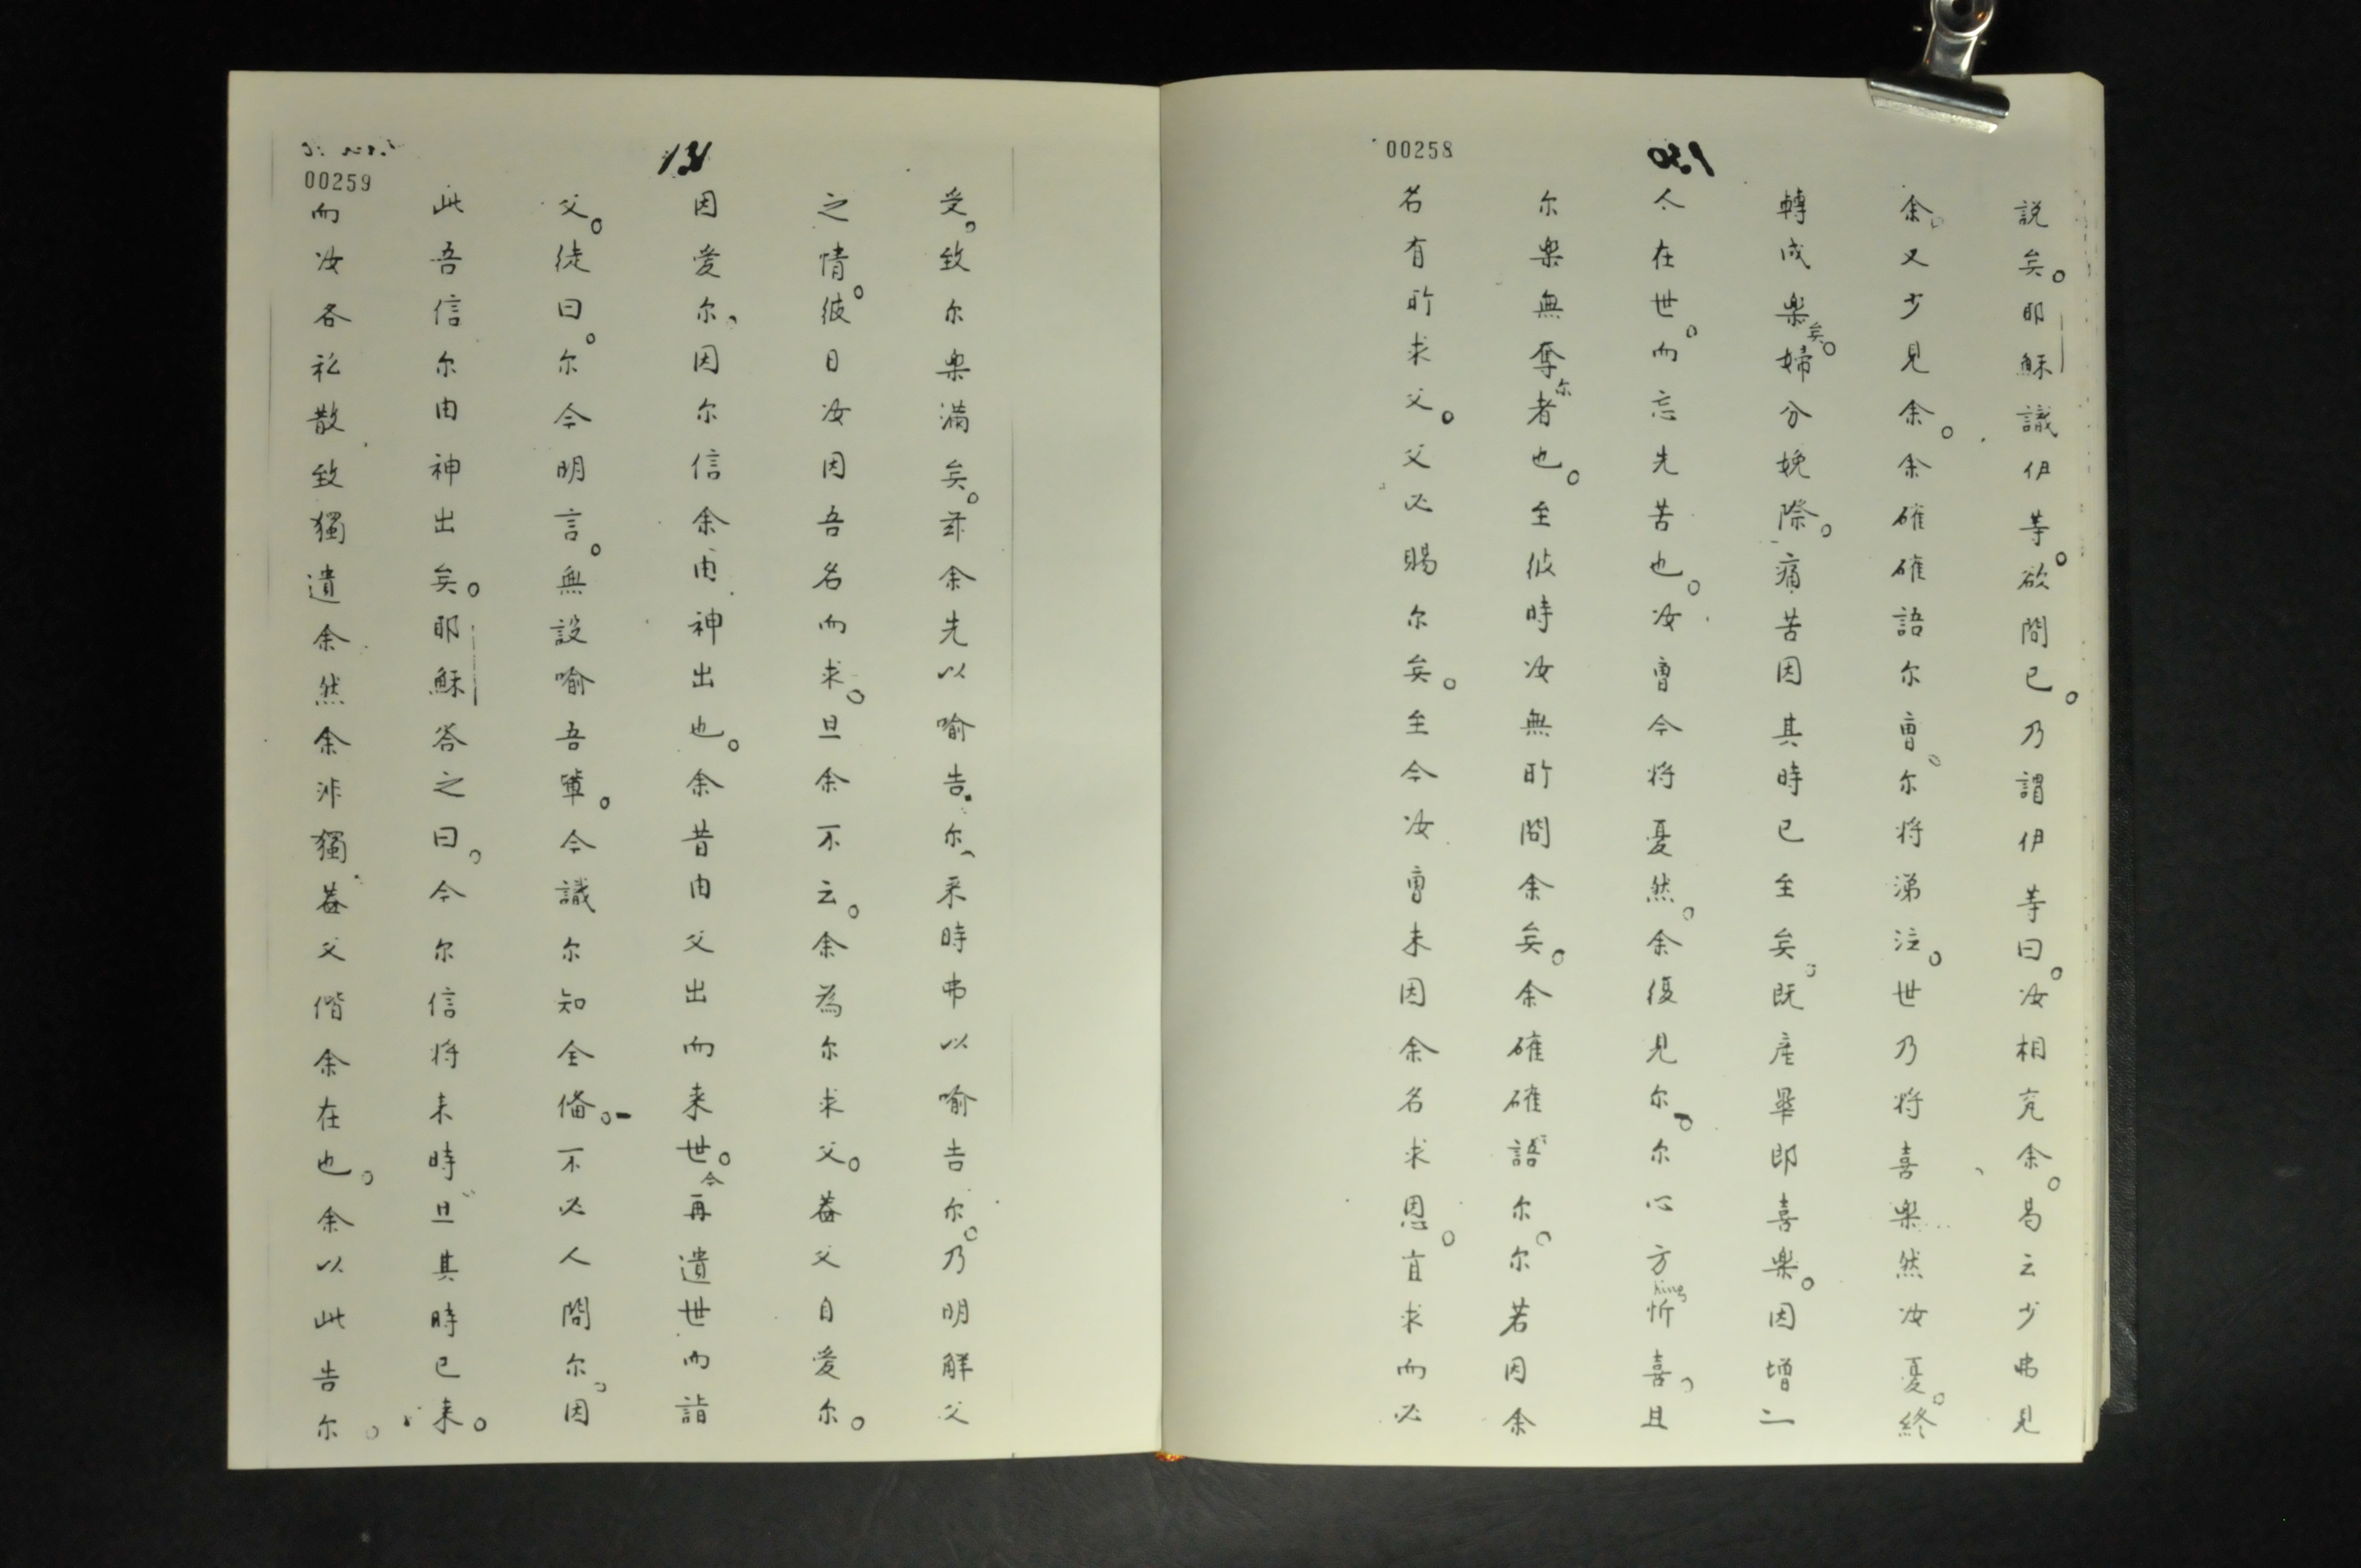 00258
130
說矣。耶穌識伊等。欲問已。乃謂伊等曰。汝相究余。曷云少弗見
余。又少見余。余確確語尔曹。尔将涕泣。世乃将喜楽然汝憂。終
轉成楽矣。婦分娩際。痛苦因其時已至矣。既産畢即喜楽。因增一
人在世。而忘先苦也。汝曹今将憂然。余復見尔。尔心方忻喜。且
hing
尔楽無奪尔者也。至彼時汝無所問余矣。余確確語尔。尔若因余
名有所求父。父必賜尔矣。至今汝曹未因余名求恩。宜求而必
131
00259
受。致尔楽满矣。玆余先以喻告尔、来時弗以喻告尔。乃明觧父
之情。彼日汝因吾名而求。旦余不云。余為尔求父。葢父自爱尔。
因爱尔。因尔信余由神出也。余昔由父出而来世。今再遺世而詣
父。徒曰。尔今明言。無設喻吾軰。今識尔知全俻。不必人問尔。因
此吾信尔由神出矣。耶穌答之曰。今尔信将来時旦其時已来。
而汝各私散致獨遺余然余非獨葢父偕余在也。余以此告尔。